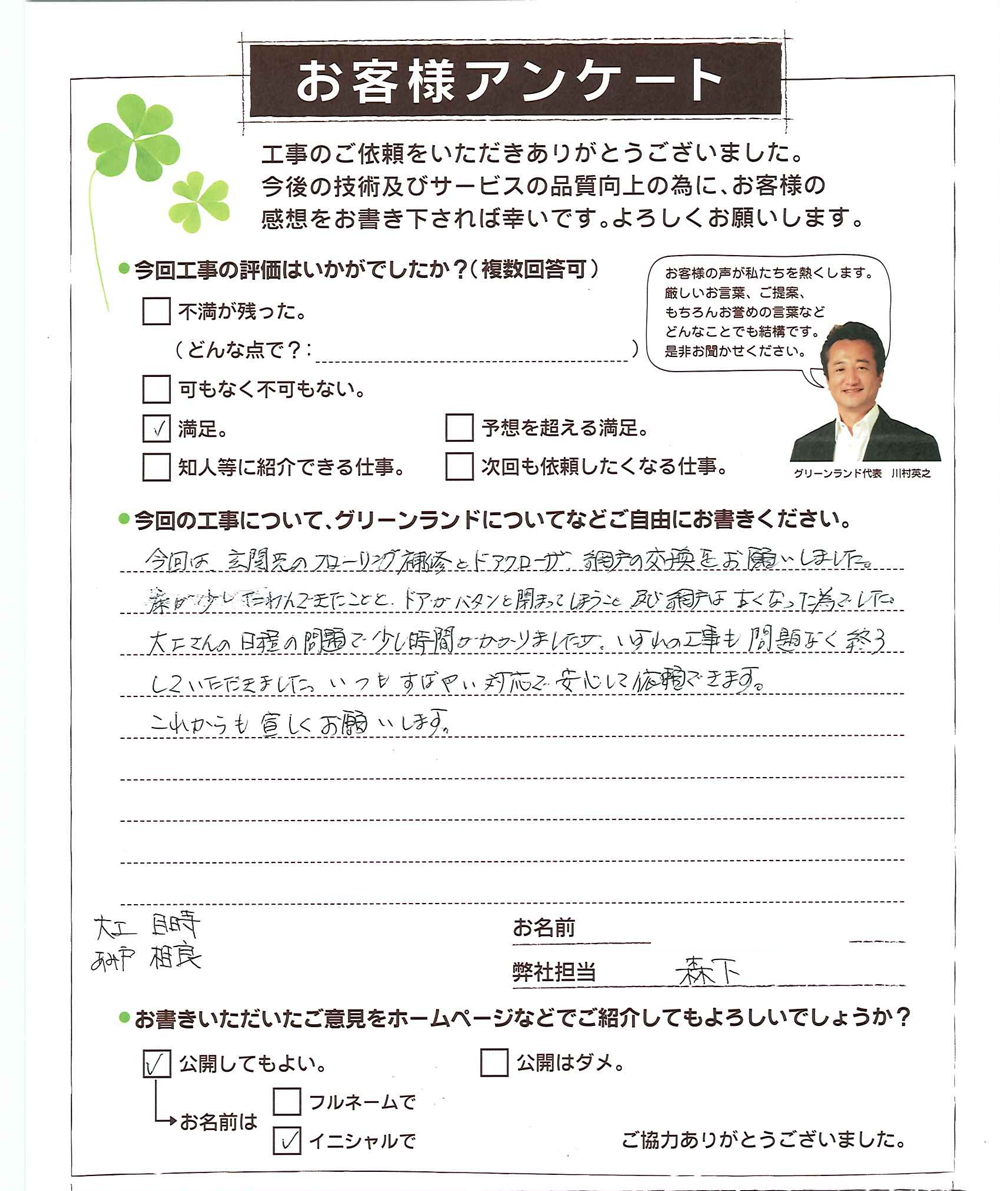 お客様アンケート
工事のご依頼をいただきありがとうございました。
今後の技術及びサービスの品質向上の為に、お客様の
感想をお書き下されば幸いです。よろしくお願いします。
今回工事の評価はいかがでしたか？（複数回答可）
不満が残った。
（どんな点で？： ）
可もなく不可もない。
✓ 満足。
予想を超える満足。
知人等に紹介できる仕事。
次回も依頼したくなる仕事。
お客様の声が私たちを熱くします。
厳しいお言葉、ご提案、
もちろんお誉めの言葉など
どんなことでも結構です。
是非お聞かせください。
グリーンランド代表　川村英之
今回の工事について、グリーンランドについてなどご自由にお書きください。
今回は、玄関先のフローリング補修とドアクローザ、網戸の交換をお願いしました。
床が少したわんできたことと、ドアがバタンと閉まってしまうこと及び網戸は古くなった為でした。
大工さんの日程の問題で少し時間がかかりましたが、いずれの工事も問題なく終了
していただきました。いつもすばやい対応で安心して依頼できます。
これからも宜しくお願いします。
大工 目時
あみ戸 相良
お名前
弊社担当 森下
お書きいただいたご意見をホームページなどでご紹介してもよろしいでしょうか？
✓ 公開してもよい。
公開はダメ。
お名前は
フルネームで
✓ イニシャルで
ご協力ありがとうございました。